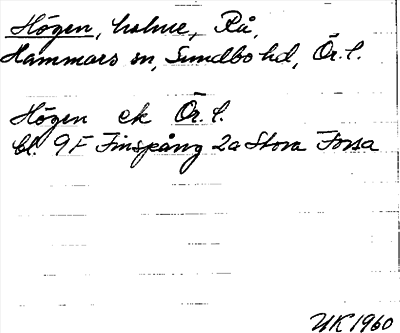 Högen, holme, Rå,
Hammars sn, Sundbo hd, Ör. l.
Högen ek Ör. l.
bl. 9F Finspång 2a Stora Forsa
UK 1960